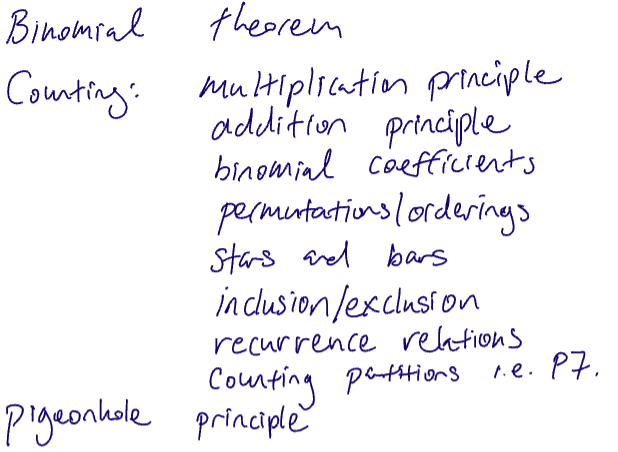 Binomial theorem
Counting: multiplication principle
addition principle
binomial coefficients
permutations/orderings
stars and bars
inclusion/exclusion
recurrence relations
Counting partitions i.e. P7.
pigeonhole principle